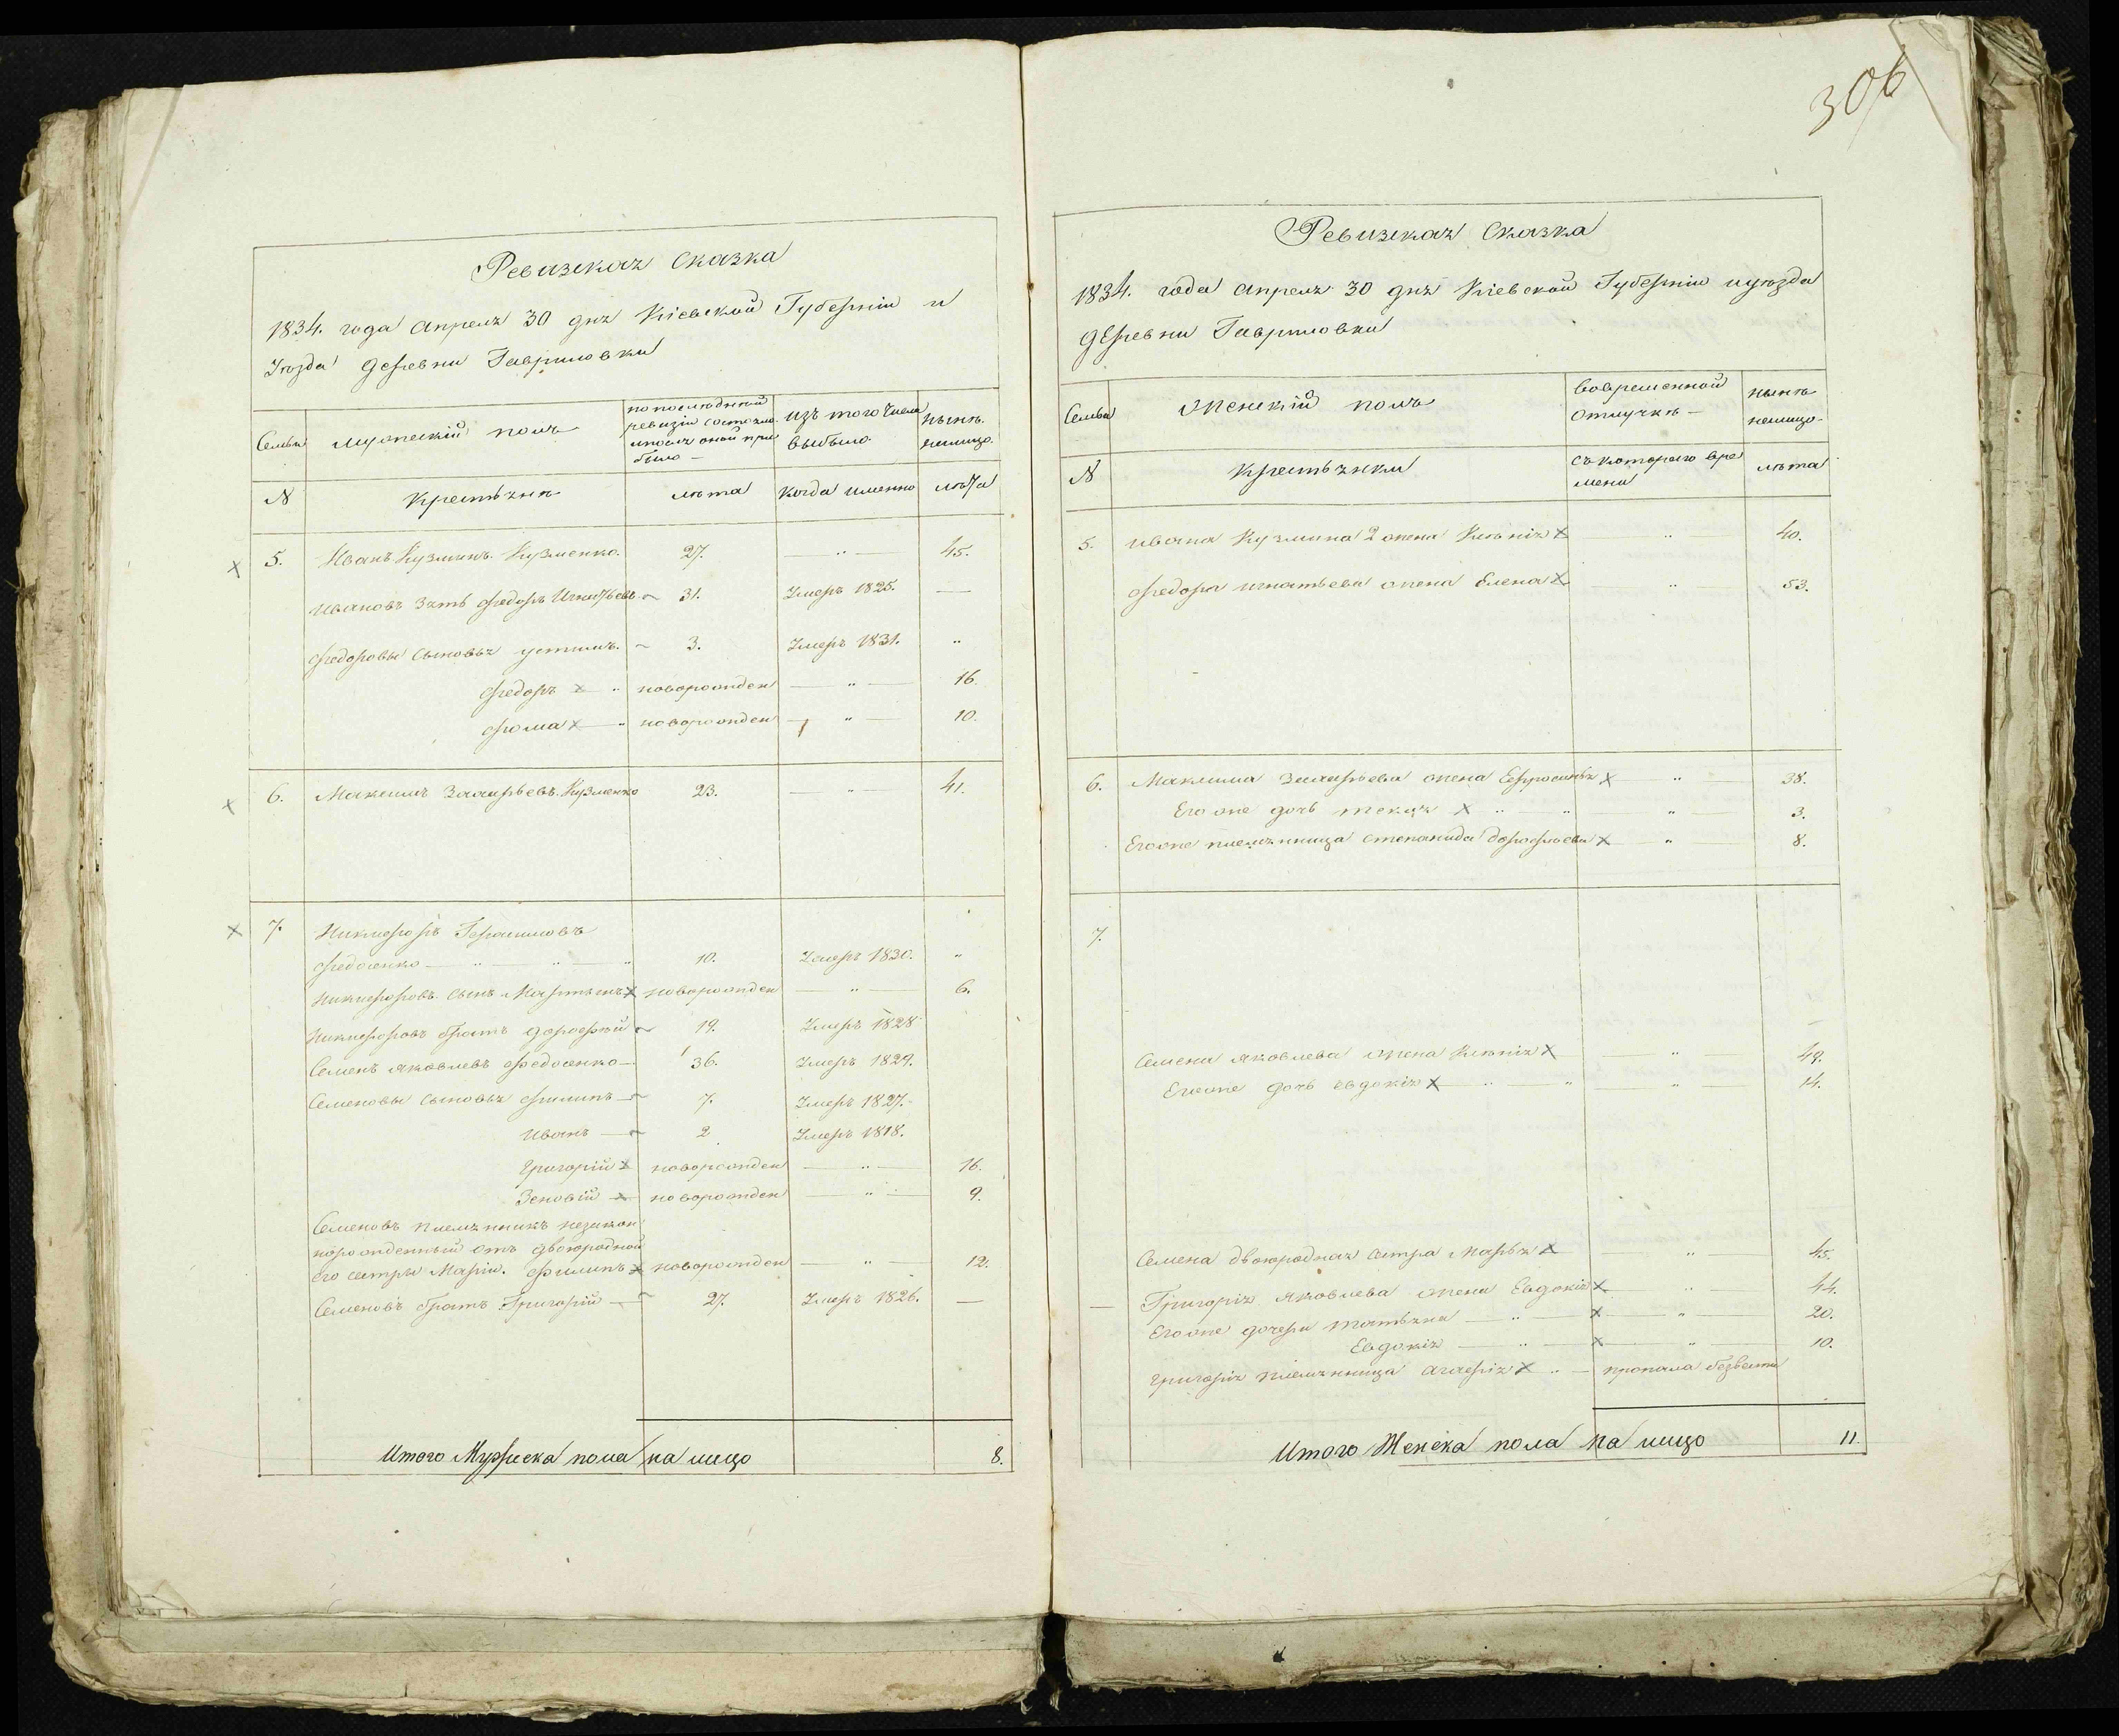 306
Ревизская Сказка
1834. года Апреля 30 дня Кіевской Губерніи и
Уѣзда деревни Гавриловки
Семьи
мужескій полъ
по последнѣй
ревизіи состояло
и после оной при
было —
изъ того числа
выбыло.
нынѣ.
на лицо.
N
Крестьянъ
лѣта
когда именно
лѣта
5. Иванъ Кузминъ. Кузменко. 27. — „ — 45.
Ивановъ зять Федоръ Игнатьевъ 31. Умеръ 1825. —
Федоровы сыновья устимъ. 3. Умеръ 1831. „
Федоръ „ новорожден — „ — 16.
Фома „ новорожден — „ — 10.
6. Максимъ Захарьевъ. Кузменко 23. — „ — 41.
7. Никифоръ Герасимовъ
Федосенко — „ — „ — „ 10. Умеръ 1830. „
Никифоровъ сынъ Мартынъ новорожден — „ — 6.
Никифоровъ братъ дорофѣй 19. Умеръ 1828
Семенъ яковлевъ Федосенко — 36. Умеръ 1829.
Семеновы сыновья филипъ — 7. Умеръ 1827.
иванъ — 2 Умеръ 1818.
григорій новорожден — „ — 16.
Зеновій новорожден — „ — 9.
Семеновъ племянникъ незакон
норожденный отъ двоюродной
его сестры Маріи. Филипъ новорожден — „ — 12.
Семеновъ братъ Григорій — 27. Умеръ 1826. —
Итого Мужеска пола на лицо 8.
Ревизская Сказка
1834. года апреля 30 дня Кіевской Губерніи и уѣзда
деревни Гавриловки
Семьи
женскій полъ
во временной
отлучкѣ —
нынѣ
на лицо —
N
Крестьянки
съ котораго вре
мени
лѣта
5. ивана Кузмина 2 жена Ксенія „ 40.
Федора игнатьева жена Елена „ 53.
6. Максима Захарьева жена Ефросинья „ 38.
Его же дочь текля „ — „ — „ — 3.
Его же племянница степанида дорофѣева „ — 8.
7.
Семена яковлева жена Ксенія „ — 49.
Его же дочь евдокія — „ — „ „ 14.
Семена двоюродная сестра Марья „ — 45.
— Григорія яковлева жена Евдокія „ 44.
Его же дочери татьяна — „ — „ — 20.
Евдокія — „ — „ — 10.
григорія племянница агафія „ — пропала безвести
Итого Женска пола на лицо 11.